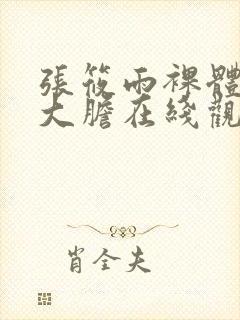 張筱雨裸體
大膽在綫觀
肖全夫